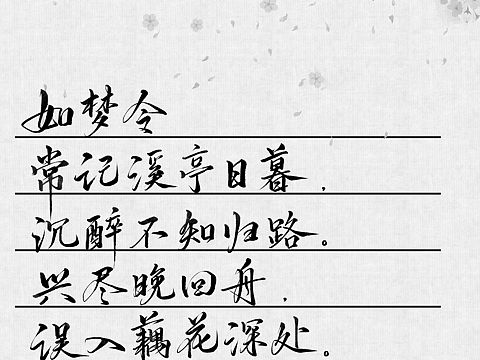 如梦令
常记溪亭日暮，
沉醉不知归路。
兴尽晚回舟，
误入藕花深处。